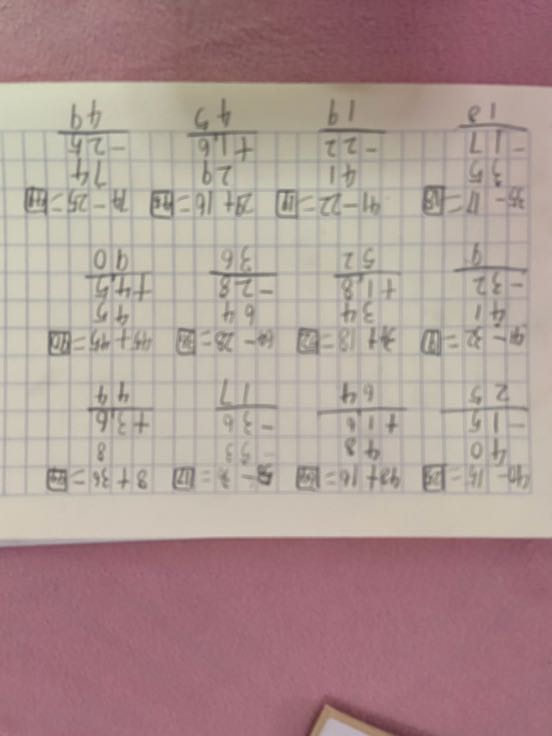 40-15=25 48+16=64 53-36=17 8+36=44
40 48 53 8
-15 +16 -36 +36
25 64 17 44
41-32=9 34+18=52 64-28=36 45+45=90
41 34 64 45
-32 +18 -28 +45
9 52 36 90
35-17=18 41-22=19 29+16=45 74-25=49
35 41 29 74
-17 -22 +16 -25
18 19 45 49